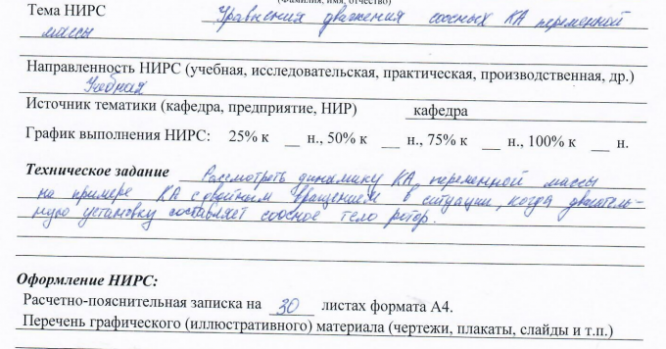 (фамилия, имя, отчество)
Тема НИРС Уравнения движения соосных КА переменной
массы
Направленность НИРС (учебная, исследовательская, практическая, производственная, др.)
Учебная
Источник тематики (кафедра, предприятие, НИР) кафедра
График выполнения НИРС: 25% к __ н., 50% к __ н., 75% к __ н., 100% к __ н.
Техническое задание Рассмотреть динамику КА переменной массы
на примере КА с двойным вращением в ситуации, когда двигатель-
ную установку составляет соосное тело ротор.
Оформление НИРС:
Расчетно-пояснительная записка на 30 листах формата А4.
Перечень графического (иллюстративного) материала (чертежи, плакаты, слайды и т.п.)